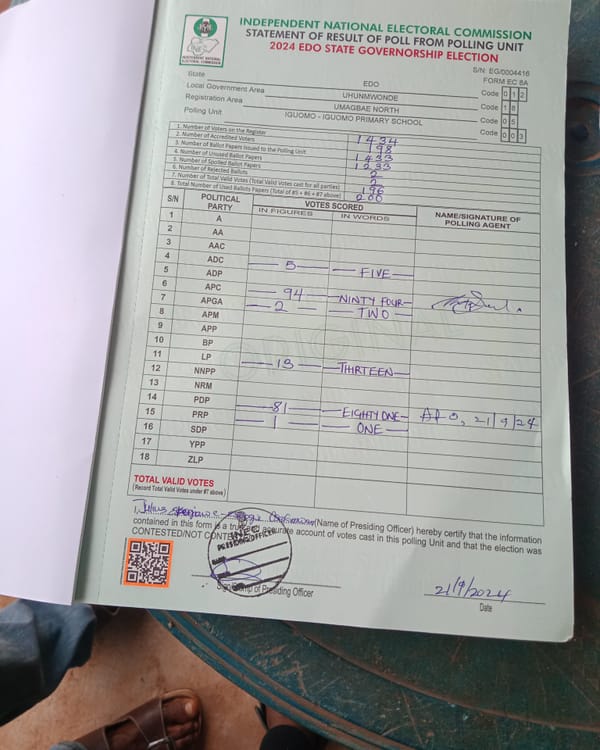 INDEPENDENT NATIONAL ELECTORAL COMMISSION
STATEMENT OF RESULT OF POLL FROM POLLING UNIT
2024 EDO STATE GOVERNORSHIP ELECTION
INEC
INDEPENDENT NATIONAL
ELECTORAL COMMISSION
S/N: EG/0004416
FORM EC 8A
State EDO Code 0 1 2
Local Government Area UHUNMWONDE Code 1 8
Registration Area UMAGBAE NORTH Code 0 5
Polling Unit IGUOMO - IGUOMO PRIMARY SCHOOL Code 0 0 3
1. Number of Voters on the Register 1434
2. Number of Accredited Voters 198
3. Number of Ballot Papers Issued to the Polling Unit 1433
4. Number of Unused Ballot Papers 1233
5. Number of Spoiled Ballot Papers 2
6. Number of Rejected Ballots 2
7. Number of Total Valid Votes (Total Valid Votes cast for all parties) 196
8. Total Number of Used Ballots Papers (Total of #5 + #6 + #7 above) 200
S/N POLITICAL PARTY VOTES SCORED NAME/SIGNATURE OF POLLING AGENT
IN FIGURES IN WORDS
1 A
2 AA
3 AAC
4 ADC 5 FIVE
5 ADP
6 APC 94 NINTY FOUR
7 APGA 2 TWO
8 APM
9 APP
10 BP
11 LP 13 THIRTEEN
12 NNPP
13 NRM
14 PDP 81 EIGHTY ONE 21/9/24
15 PRP 1 ONE
16 SDP
17 YPP
18 ZLP
TOTAL VALID VOTES
(Record Total Valid Votes under #7 above)
I, Julius (Name of Presiding Officer) hereby certify that the information
contained in this form is a true and accurate account of votes cast in this polling Unit and that the election was
CONTESTED/NOT CONTESTED
INEC
PRESIDING OFFICER
Sign/Stamp of Presiding Officer
21/9/2024
Date